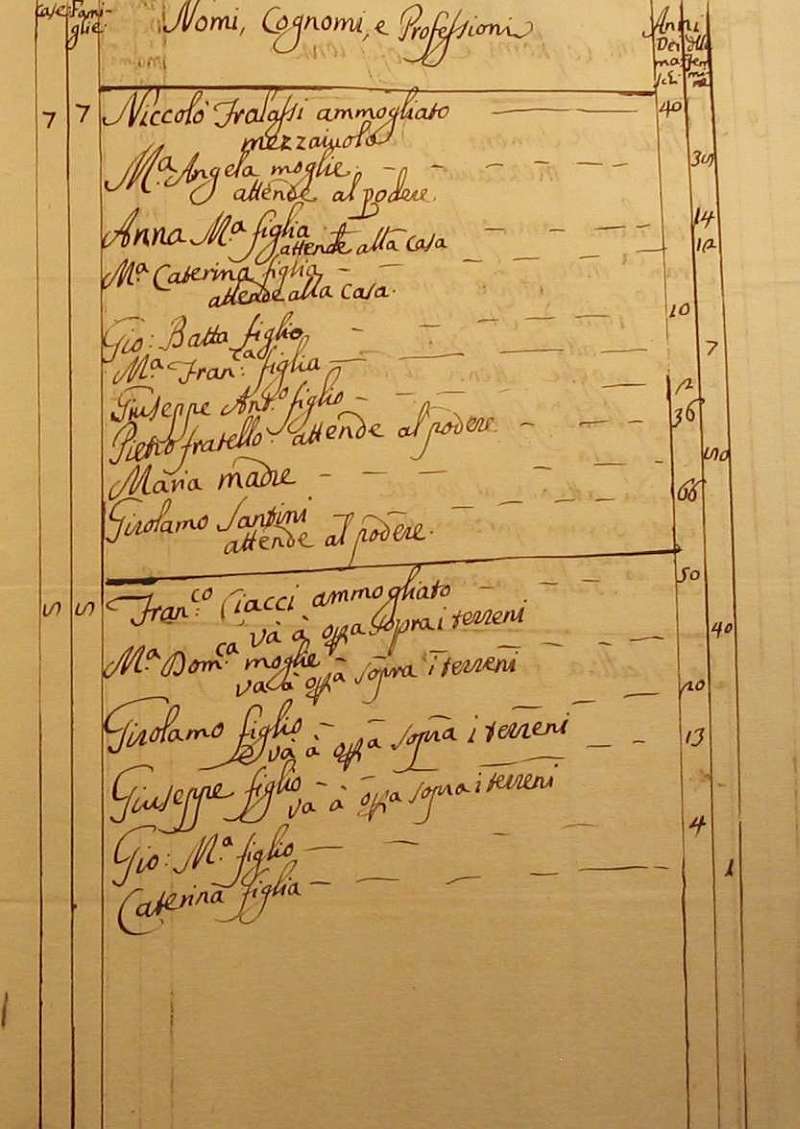 Case Fami-
glie
Nomi, Cognomi, e Professioni
Anni
Dei delle
mas fem
chi mine
7 7 Niccolò Fralassi ammogliato 40
mezzaiuolo
M.ª Angela moglie 35
attende al podere
Anna M.ª figlia 14
attende alla Casa
M.ª Caterina figlia 12
attende alla Casa.
Gio: Batta figlio 10
M.ª Fran.ca figlia 7
Giuseppe Ant.º figlio 2
Pietro fratello attende al podere 36
Maria madre 50
Girolamo Santini 66
attende al podere.
5 5 Fran.co Ciacci ammogliato 50
và à opra sopra i terreni
M.ª Dom.ca moglie 40
va à opra sopra i terreni
Girolamo figlio 20
và à opra sopra i terreni
Giuseppe figlio 13
va à opra sopra i terreni
Gio: M.ª figlio 4
Caterina figlia 1